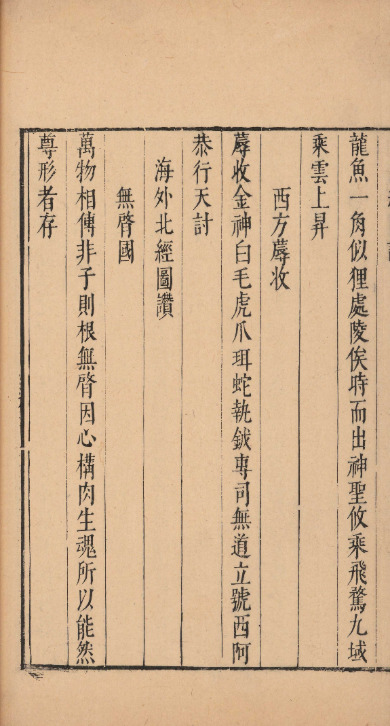 龍魚一角似狸處陵俟時而出神聖攸乗飛騖九域
乗雲上昇
西方蓐收
蓐收金神白毛虎爪珥蛇執鉞專司無道立號西阿
恭行天討
海外北經圖讃
無𦜹國
萬物相傳非子則根無𦜹因心構肉生魂所以能然
尊形者存